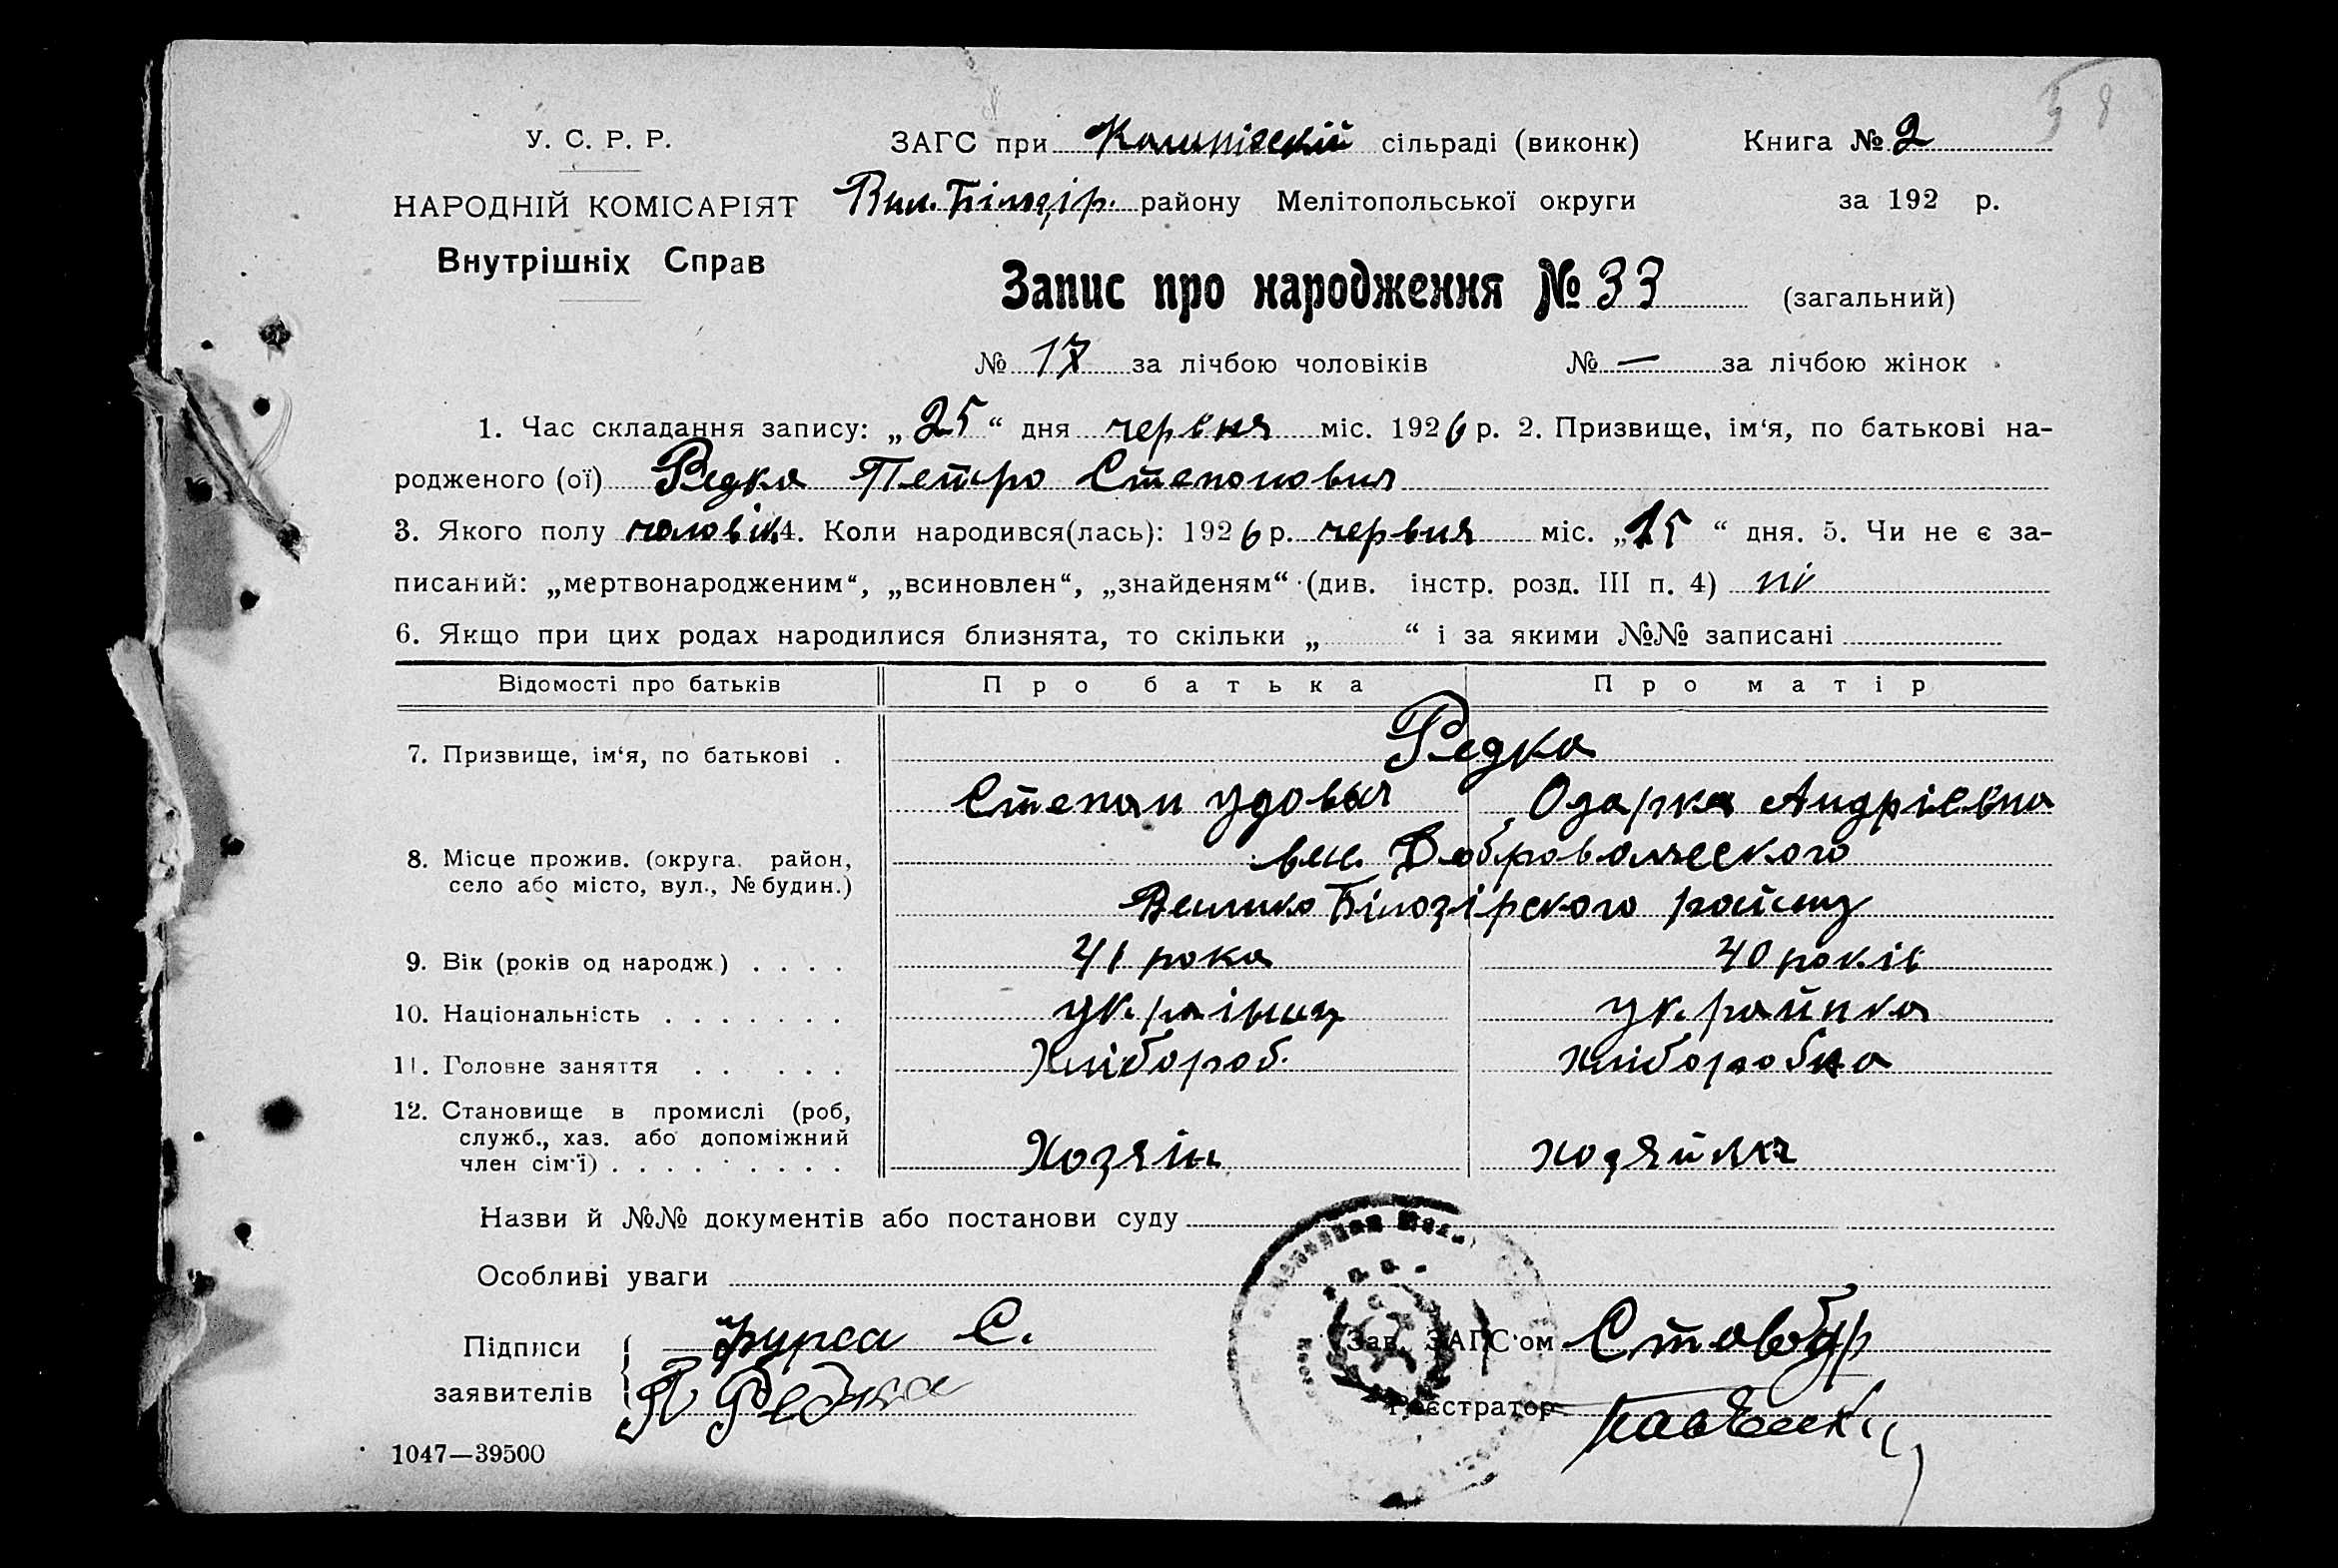 58
У. С. Р. Р.
ЗАГС при сільраді (виконк)
Книга № 2
НАРОДНІЙ КОМІСАРІЯТ
Вел. Білозір. району Мелітопольської округи
за 192 р.
Внутрішніх Справ
Запис про народження № 33 (загальний)
№ 17 за лічбою чоловіків № — за лічбою жінок
1. Час складання запису: „25“ дня червня міс. 1926 р. 2. Призвище, ім‘я, по батькові на-
родженого (ої) Редка Петро Степонович
3. Якого полу чоловік. 4. Коли народився(лась): 1926 р. червня міс. „15“ дня. 5. Чи не є за-
писаний: „мертвонародженим“, „всиновлен“, „знайденям“ (див. інстр. розд. III п. 4) ні
6. Якщо при цих родах народилися близнята, то скільки „ “ і за якими №№ записані
Відомості про батьків Про батька Про матір
7. Призвище, ім‘я, по батькові . Редка
Степан Одарка Андріевна
8. Місце прожив. (округа. район,
село або місто, вул., № будин.)
Велико Білозірского району
9. Вік (років од народж.) . . . . 41 рока 40 років
10. Національність . . . . . . . українец украйнка
11. Головне заняття . . . . . Хлібороб. хліборобка
12. Становище в промислі (роб,
служб., хаз. або допоміжний
член сім‘ї) . . . . . . . . . Хозяін хозяйка
Назви й №№ документів або постанови суду
Особливі уваги
Підписи Фурса С. Зав. ЗАГС‘ом
заявителів П Редка Реєстратор
1047—39500